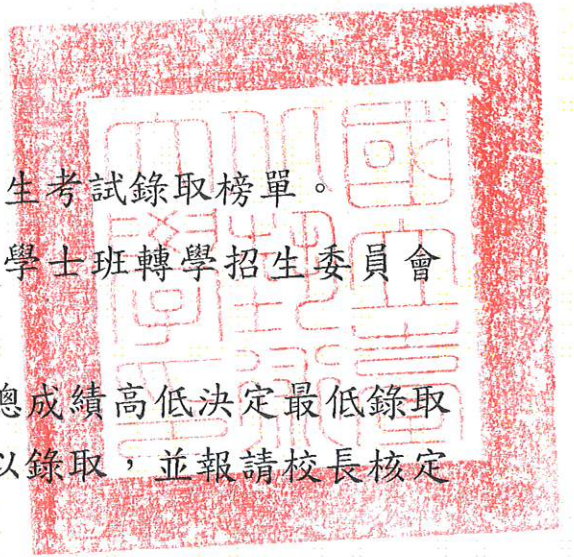 生考試錄取榜單。
學士班轉學招生委員會
總成績高低決定最低錄取
以錄取，並報請校長核定
國立臺
大學印